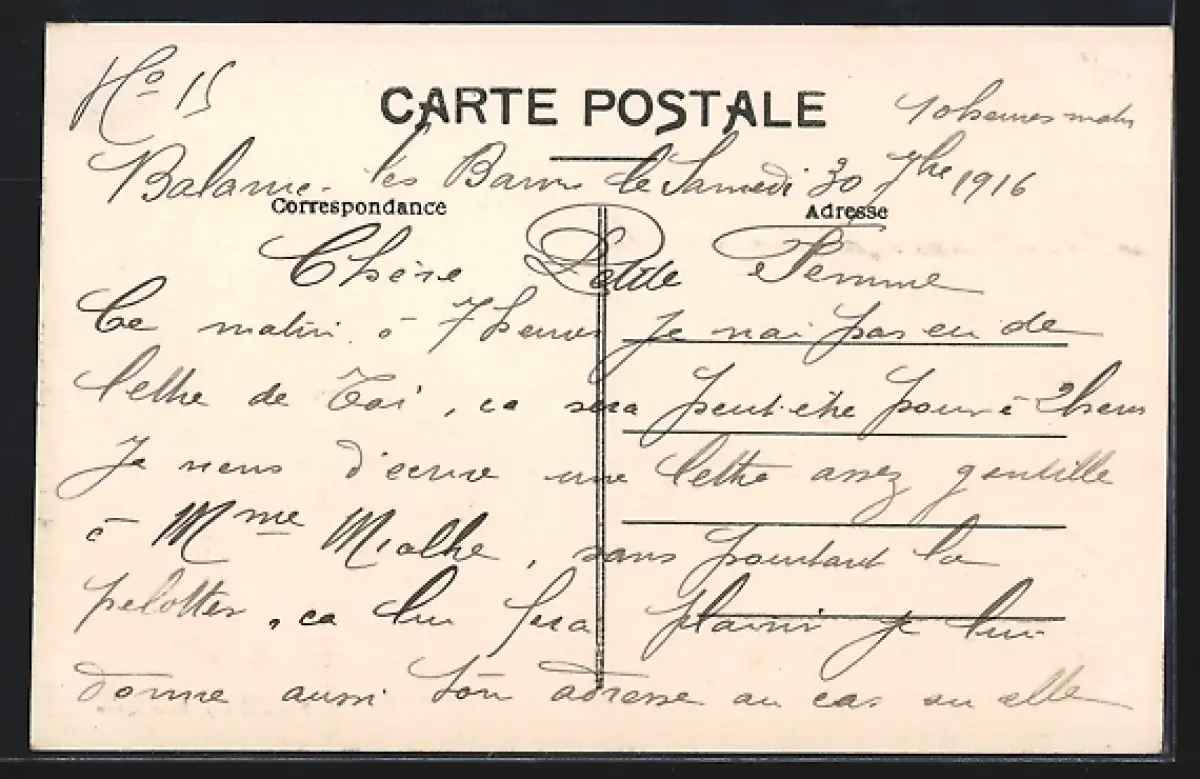 No 15
CARTE POSTALE
10 heures matin
Balaruc-les Bains le Samedi 30 7bre 1916
Correspondance
Adresse
Chère Petite Femme
Ce matin à 7 heures je n'ai pas eu de
lettre de Toi, ca sera peut-être pour à 2 heures
Je viens d'écrire une lettre assez gentille
à Mme Mialhe, sans pourtant la
pelotter, ca lui fera plaisir je lui
donne aussi ton adresse au cas ou elle